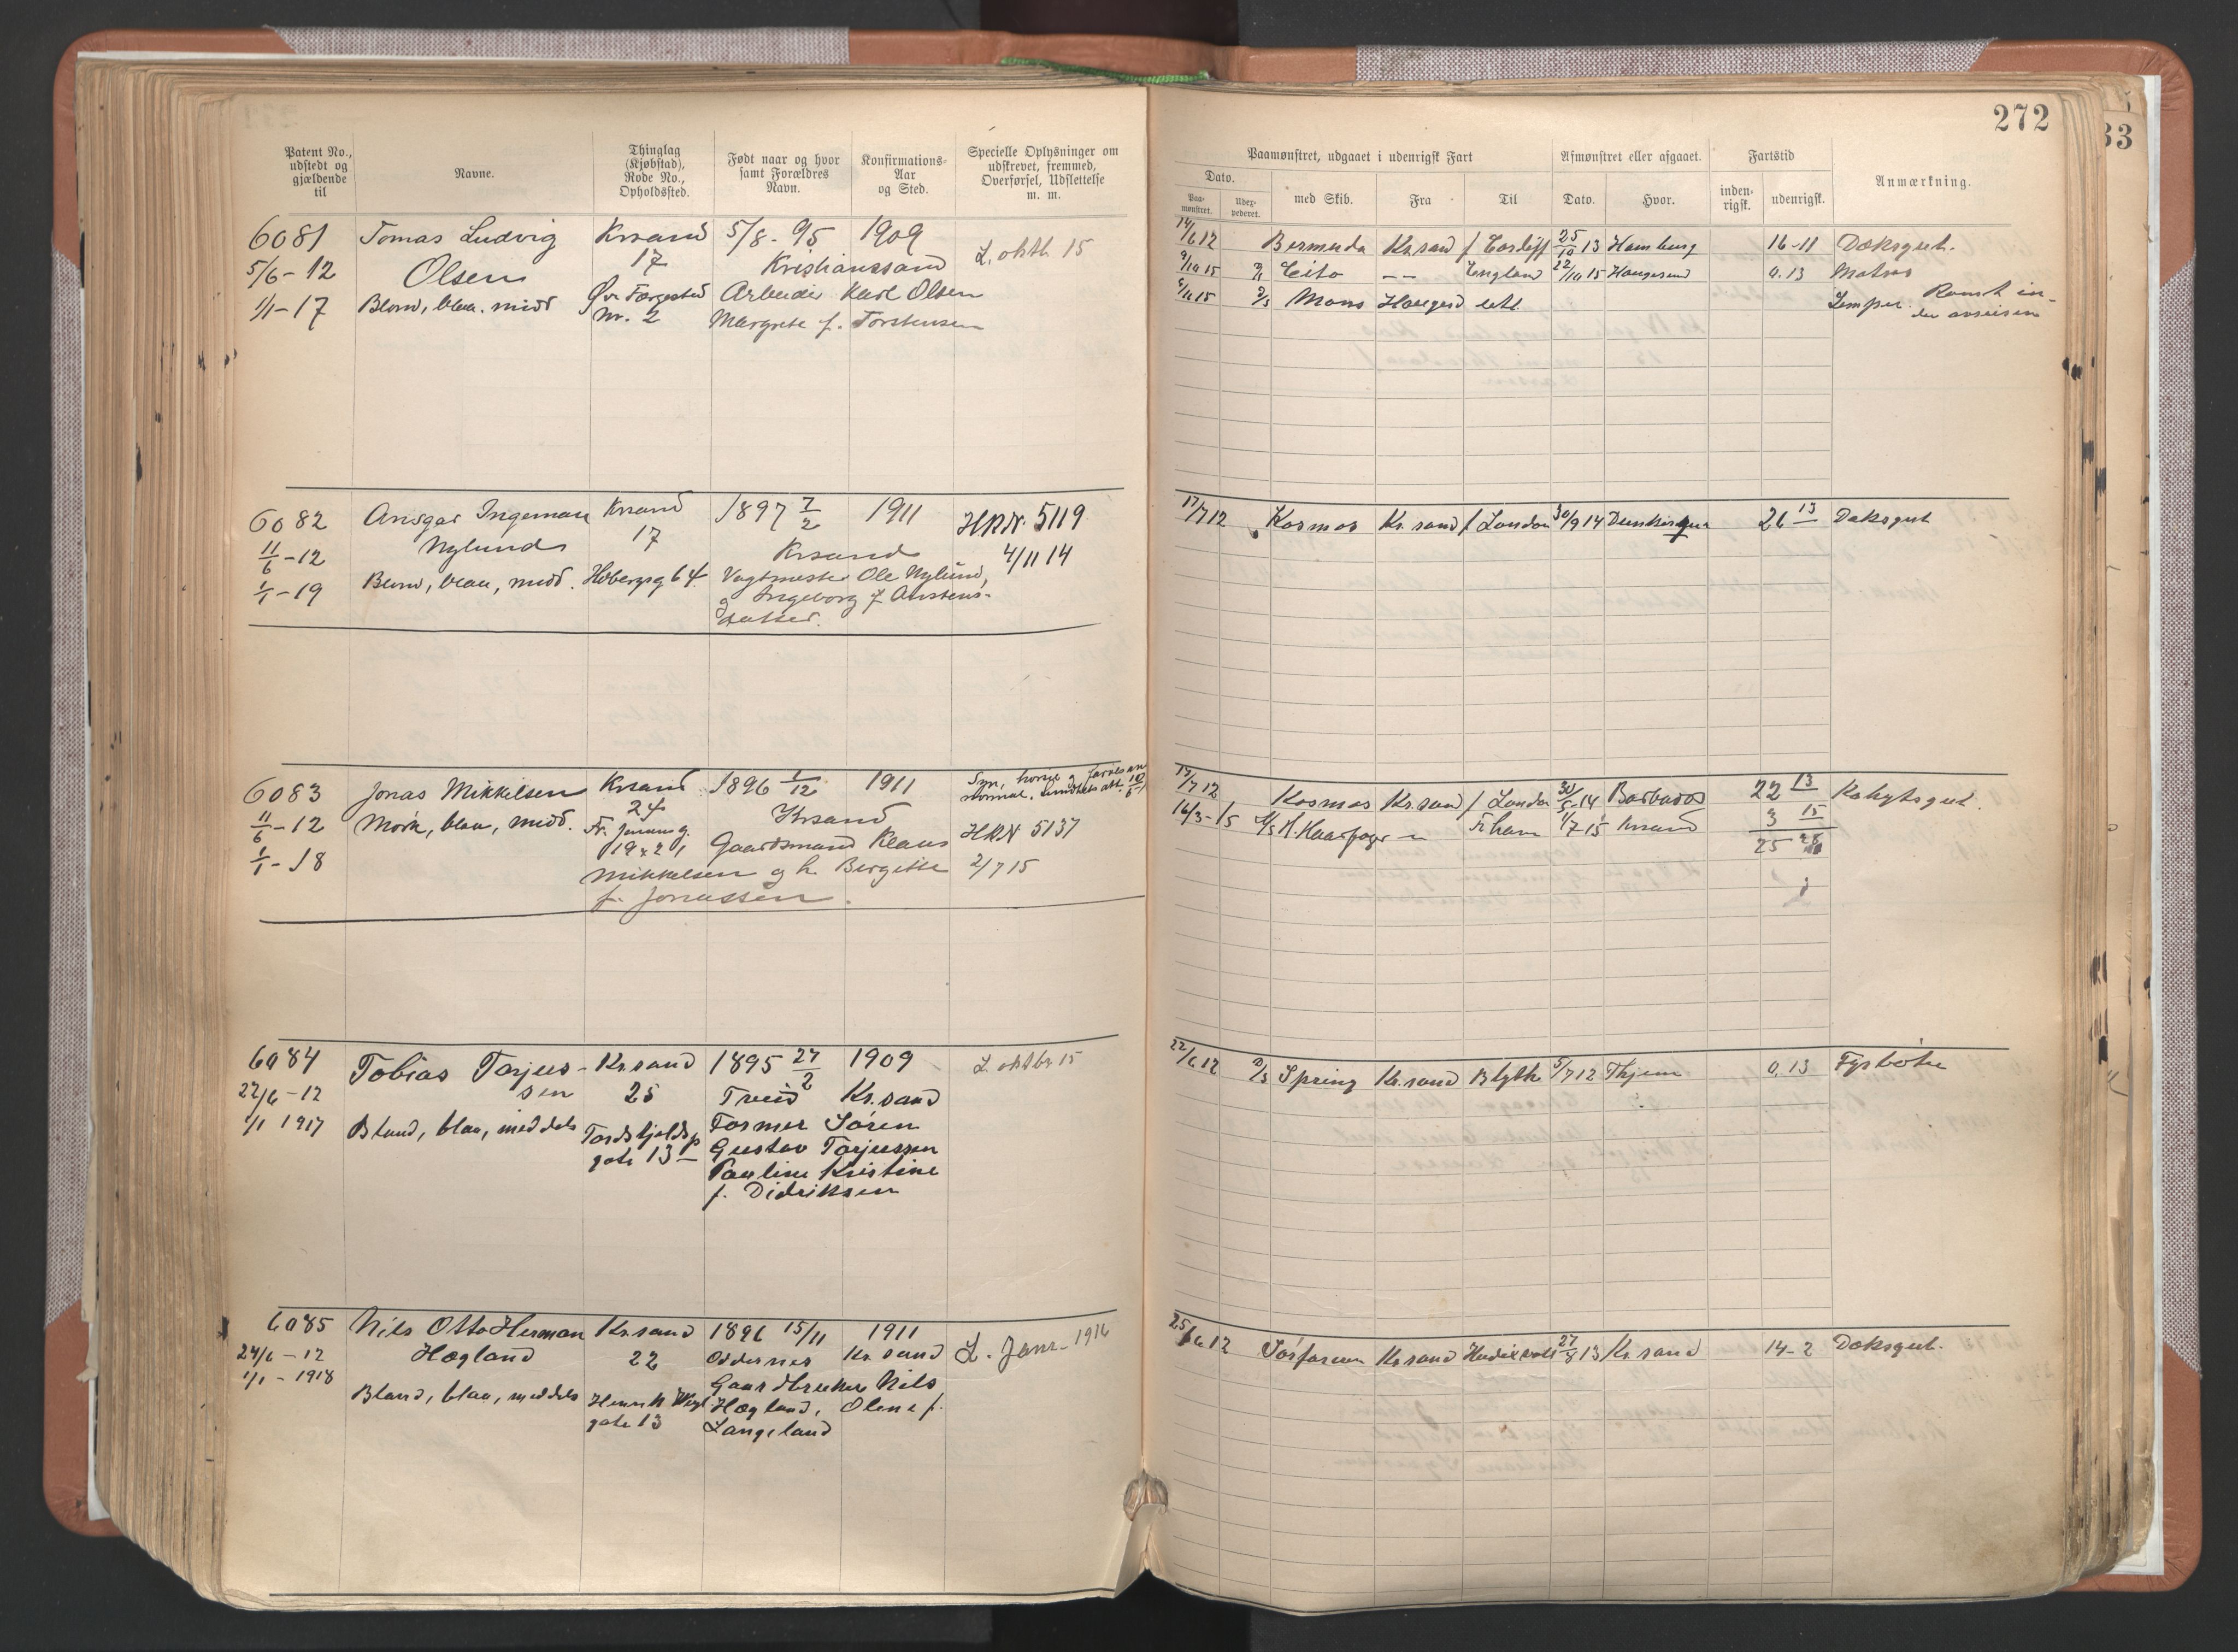 272
33
Patent No., udstedt og gjældende til
Navne.
Thinglag (Kjøbstad), Rode No., Opholdssted.
Født naar og hvor samt Forældres Navn.
Konfirmations-Aar og Sted.
Specielle Oplysninger om udskrevet, fremmed, Overførsel, Udslettelse m. m.
Paamønstret, udgaaet i udenrigsk Fart
Afmønstret eller afgaaet.
Fartstid
Anmærkning.
Dato.
Paa-mønstret.
Udex-pederet.
med Skib.
Fra
Til
Dato.
Hvor.
inden-rigsk.
udenrigsk.
6081 Tomas Ludvig Krsand 5/8 - 95 1909
5/6 - 12 Olsen 17 Kristianssand L. oktb. 15
1/1 - 17 Blond, blaa. midd Øv. Færgested Arbeider Karl Olsen
Nr. 2 Margrete f. Torstensen
14/6 12 Bermuda Kr.sand / Cardiff 25/10 13 Hamburg 16-11 Dæksgut.
Cito — — England 22/10 15 Haugesund 0.13 Matros
Mons Lemper.
6082 Ansgar Ingeman Krsand 1897 7/2 1911 HRNr. 5119
11/6 - 12 Nylund 17 Krsand 4/11 14
1/1 - 19 Blond, blaa, midd. Holbergsg 64 Vagtmester Ole Nylund,
og Ingeborg f. Austens-
datter.
17/7 12 Kosmos Kr.sand / London 30/9 14 Dunkerque 26 13 Dæksgut
6083 Jonas Mikkelsen Krsand 1896 1/12 1911
11/6 - 12 Mørk, blaa, midd. 24 Krsand
1/1 - 18 19 & 21 Gaardsmand Klaus HRN 5137
Mikkelsen og h. Bergitte 2/7 15
f. Jonassen.
17/7 12 Kosmos Kr.sand / London 30/5-14 Barbados 22 13 Kahytsgut.
16/3-15 H. Haarfagr Tr.havn 1/7-15 Krsand 3 15
25 28
6084 Tobias Torjus- Kr.sand 1895 27/2 1909 L. oktbr 15
22/6 - 12 sen 25 Treid Kr.sand
1/1 1917 Blond, blaa, middels Tordskjolds Former Sören
gate 13 Gustav Torjussen
Pauline Kristine
f. Didriksen
22/6 12 Spring Kr.sand Blyth 5/7 12 0.13 Fyrböter
6085 Nils Otto Herman Kr.sand 1896 15/11 1911
24/6 - 12 Hægland 22 Oddernes Kr.sand L. Janr. 1916
1/1 - 1918 Gaardbruker Nils
Blond, blaa, middels Henrik Wergl. Hægland, Olene f.
gate 13 Langeland
25/6 12 Kr.sand 27/8 13 Kr.sand 14-2 Dæksgut.